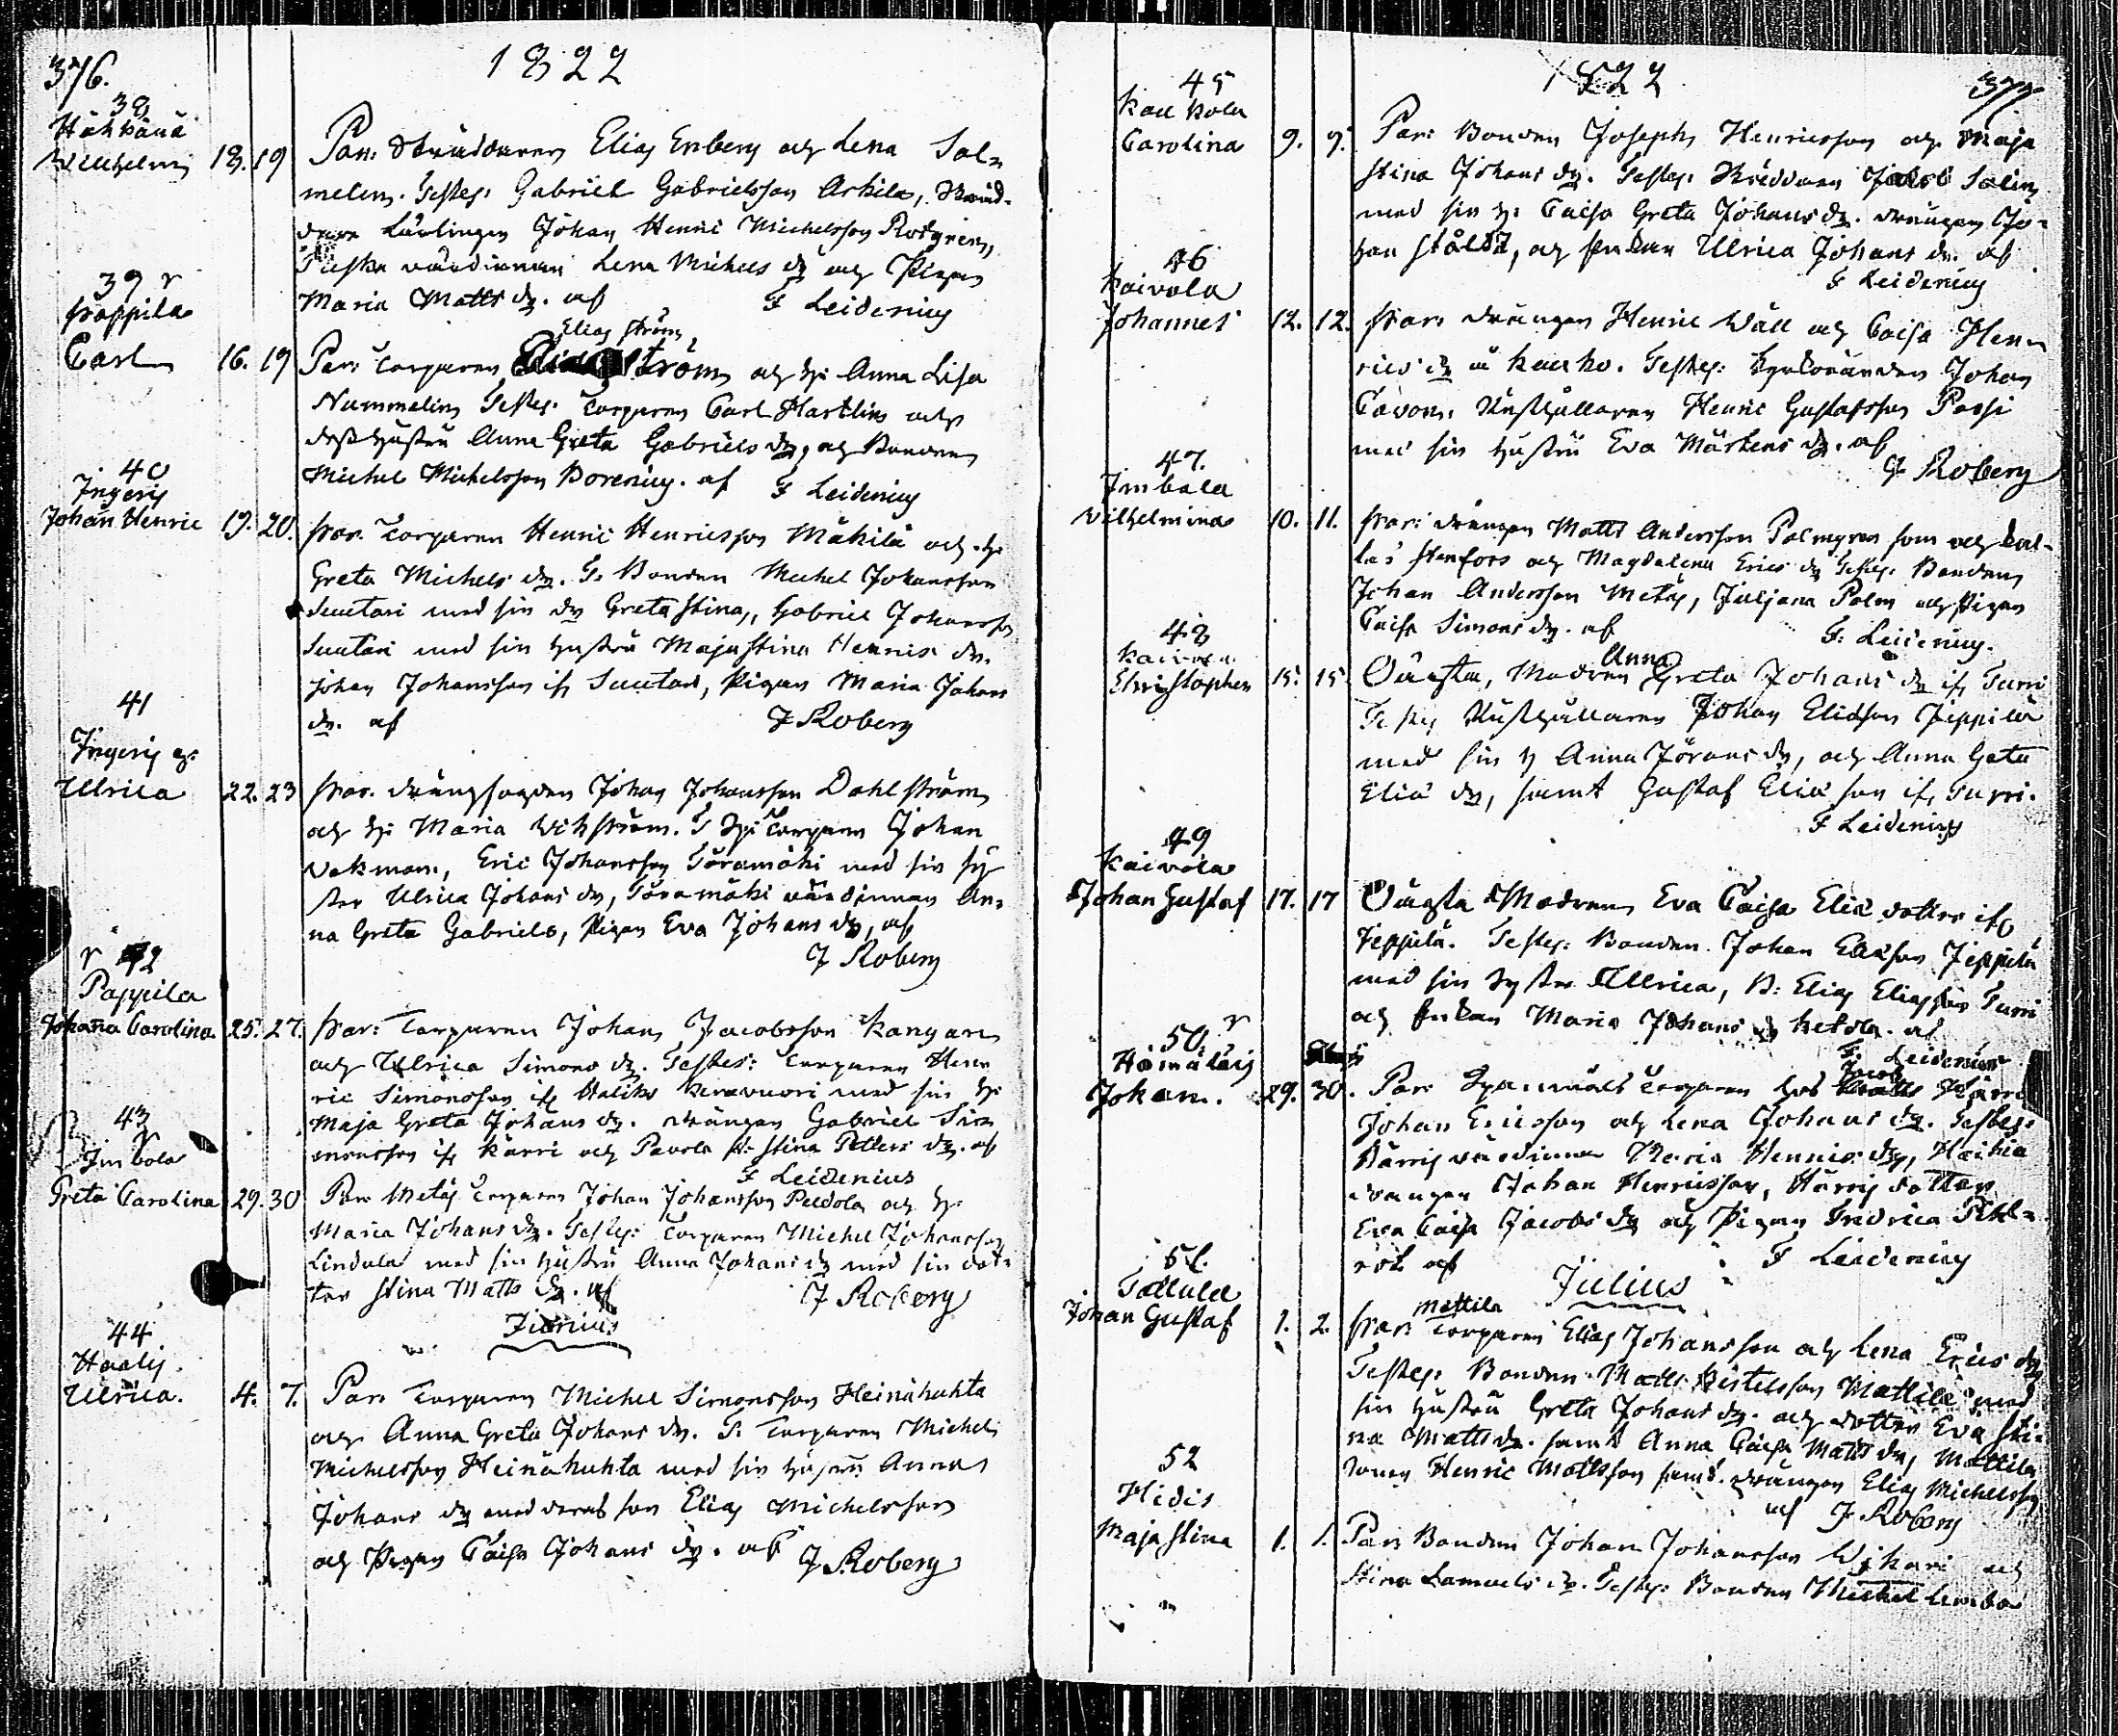 376.
1822
38
Håkkänä
Wilhelm 18. 19 Par: Skräddaren Elias Enberg och Lena Sal-
melin. Testes: Gabriel Gabrielsson Arkila, Skräd-
dare Lärlingen Johan Henric Michelsson Rodgren,
värdinnan Lena Michels dr och Pigan
Maria Matts dr. af F Leidenius
39 r
Pappila
Elias Ström
Carl 16. 19 Par: Torparen Ström och h: Anna Lisa
Nummelin Testes: Torparen Carl Hartlin och
dess hustru Anna Greta Gabriels dr, och Bonden
Michel Michelsson Borenius. af F Leidenius
40
Ingeris
Johan Henric 19. 20. Par. Torparen Henric Henricsson Mäkilä och h:
Greta Michels dr. T. Bonden Michel Johansson
Suutari med sin dr Greta Stina, Gabriel Johansson
Suutari med sin hustru Maja Stina Henrics dr.
Johan Johansson ifr Suutari, Pigan Maria Johans
dr. af J Roberg
41
Ingeris
Ulrica 22. 23 Par. Johan Johansson Dahlström
och h: Maria Wikström. T Torparen Johan
Vakman, Eric Johansson Töramäki med sin sy-
ster Ulrica Johans dr, Töramäki värdinnan An-
na Greta Gabriels, Pigan Eva Johans dr, af
J Roberg
r 42
Pappila
Johana Carolina 25. 27. Par: Torparen Johan Jacobsson Kangare
och Ulrica Simons dr. Testes: Torparen Hen-
ric Simonsson ifr Haliko Keravuori med sin h:
Maja Greta Johans dr. drängen Gabriel Sim-
onsson ifr Kärri och Pavola Stina Petters dr. af
F Leidenius
43
r
Imbola
Greta Carolina 29. 30 Par. Metäs Torparen Johan Johansson Peldola och h:
Maria Johans dr. Testes: Torparen Michel Johansson
Lindula med sin hustru Anna Johans dr med sin dot-
ter Stina Matts dr. af J Roberg
Junius
44
Haalis
Ulrica. 4. 7. Par. Torparen Michel Simonsson Heinähuhta
och Anna Greta Johans dr. T. Torparen Michel
Michelsson Heinähuhta med sin hustru Anna
Johans dr med deras son Elias Michelsson
och Pigan Caisa Johans dr. af J Roberg
1822
377
45
Kaukola
Carolina 9. 9. Par: Bonden Joseph Henricsson och Maja
Stina Johans dr. Testes: Skräddaren Jacob Salin
med sin h: Caisa Greta Johans dr. drängen Jo-
han Ståldt, och Enkan Ulrica Johans dr. af
F Leidenius
46
Kaivola
Johannes 12. 12. Par: drängen Henric Wäll och Caisa Hen-
rics dr å Kaukv. Testes: Johan
Cavon. Rusthållaren Henric Gustafsson Passi
med sin hustru Eva Mårtens dr. af
J Roberg
47.
Imbala
Vilhelmina 10. 11. Par: drängen Matts Andersson Palmgren som och kal-
las Stenfors och Magdalena Erics dr Testes: Bonden
Johan Andersson Metäs, Juljana Palm och Pigan
Caisa Simons dr. af F. Leidenius.
48
Kaivola
Anna
Christopher 15. 15. Oäcta, Modren Greta Johans dr ifr Turri
Testes Rusthållaren Johan Eliasson Jeppilä
med sin h Anna Jörans dr, och Anna Greta
Eliä dr, samt Gustaf Eliä son ifr Turri.
F Leidenius
49
Kaivola
Johan Gustaf 17. 17 Oäcta Modren Eva Caisa Eliä dotter ifr
Jeppilä. Testes: Bonden Johan Eliasson Jeppilä
med sin syster Ulrica, B: Elias Eliasson Turri
och Enkan Maria Johans dr Ketola. af
F. Leidenius
50. r
Hämäläis
Jacob
Johan. 29. 30. Par: Torparen hos Härri
Johan Ericsson och Lena Johans dr. Testes:
Härris värdinna Maria Henrics dr, Haikia
drängen Johan Henricsson, Härris dotter
Eva Caisa Jacobs dr och Pigan Fredrica Pihl-
rot af F Leidenius
Julius
51.
Tattula
Mattila
Johan Gustaf 1. 2. Par: Torparen Elias Johansson och Lena Erics dr
Testes: Bonden Matts Kristersson Mattila med
sin hustru Greta Johans dr. och dotter Eva Sti-
na Matts dr. samt Anna Caisa Matts dr, Mattila
sonen Henric Mattsson samt drängen Elias Michelsson
af J Roberg
52
Hidis
Maja Stina 1. 1. Par: Bonden Johan Johansson Wikari och
Stina Samuels dr. Testes: Bonden Michel Lemba